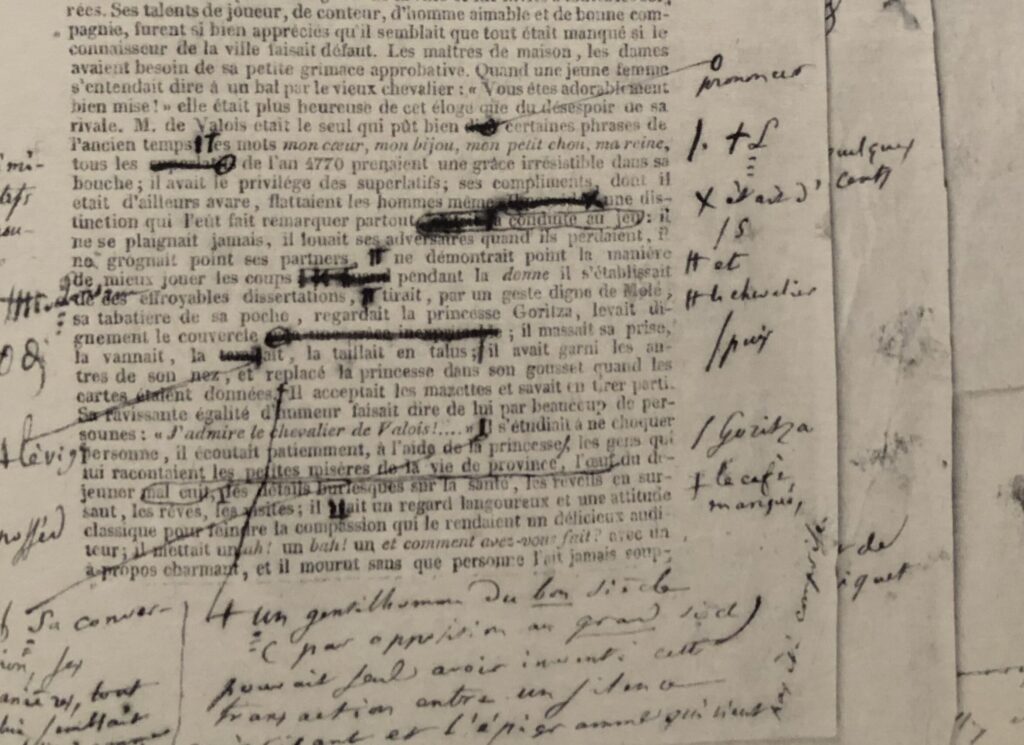 rées. Ses talents de joueur, de conteur, d'homme aimable et de bonne com-
pagnie, furent si bien appréciés qu'il semblait que tout était manqué si le
connaisseur de la ville faisait défaut. Les maîtres de maison, les dames
avaient besoin de sa petite grimace approbative. Quand une jeune femme
s'entendait dire à un bal par le vieux chevalier : « Vous êtes adorablement
bien mise! » elle était plus heureuse de cet éloge que du désespoir de sa
rivale. M. de Valois était le seul qui pût bien certaines phrases de
l'ancien temps les mots mon cœur, mon bijou, mon petit chou, ma reine,
tous les de l'an 4770 prenaient une grâce irrésistible dans sa
bouche; il avait le privilége des superlatifs; ses compliments, dont il
etait d'ailleurs avare, flattaient les hommes même une dis-
tinction qui l'eût fait remarquer partout conduite au jeu: il
ne se plaignait jamais, il louait ses adversaires quand ils perdaient, il
ne grognait point ses partners ne démontrait point la manière
de mieux jouer les coups pendant la donne il s'établissait
de des effroyables dissertations, tirait, par un geste digne de Molé,
sa tabatière de sa poche, regardait la princesse Goritza, levait di-
gnement le couvercle ; il massait sa prise,
la vannait, la , la taillait en talus; il avait garni les an-
tres de son nez, et replacé la princesse dans son gousset quand les
cartes étaient données. Il acceptait les mazettes et savait en tirer parti.
Sa ravissante égalité d'humeur faisait dire de lui par beaucoup de per-
sounes : « J'admire le chevalier de Valois!.... » Il s'étudiait à ne choquer
personne, il écoutait patiemment, à l'aide de la princesse, les gens qui
lui racontaient les petites misères de la vie de province, l'œuf du dé-
jeuner mal cuit, les détails burlesques sur la santé, les réveils en sur-
saut, les rêves, les visites; il avait un regard langoureux et une attitude
classique pour feindre la compassion qui le rendaient un délicieux audi-
teur; il mettait un ah! un bah! un et comment avez-vous fait? avec un
à propos charmant, et il mourut sans que personne l'ait jamais soup-
prononcer
quelques
cents
était d'
/ S
et
le chevalier
/ puis
/ Goritza
+ le café,
manqué,
de
+ un gentilhomme du bon siècle
( par opposition au grand siècle)
pouvait seul avoir inventé cette
transaction entre un silence
et l'épigramme qui vient
Sa conver-
ses
tout
semblait